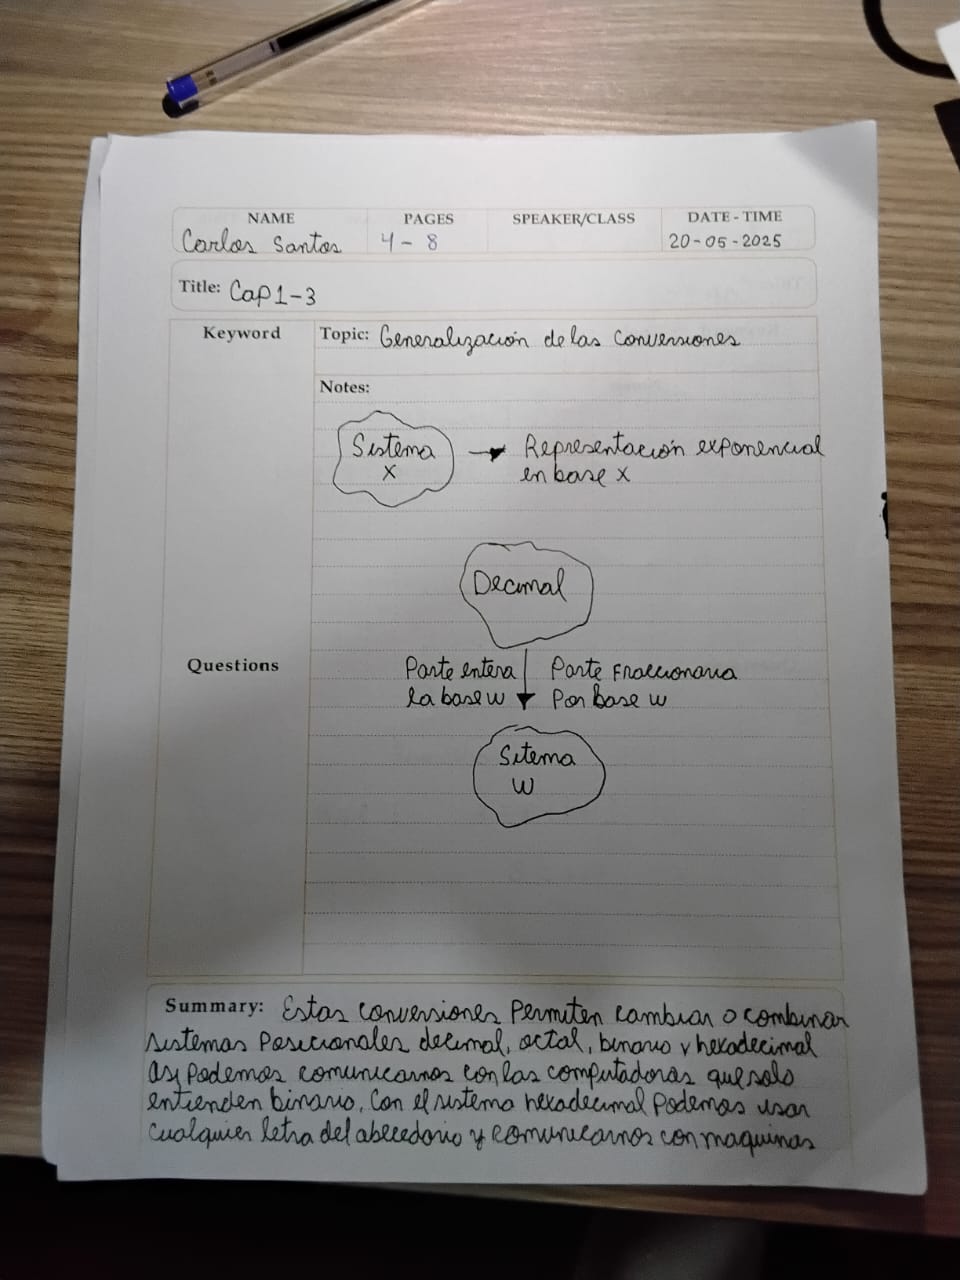 NAME PAGES SPEAKER/CLASS DATE - TIME
Carlos Santos 4 - 8 20-05-2025
Title: Cap1-3
Keyword Topic: Generalización de las Conversiones
Notes:
Sistema → Representación exponencial
X en base X
Decimal
Questions Parte entera Parte Fraccionaria
la base w Por base w
Sitema
W
Summary: Estas conversiones Permiten cambiar o combinar
sistemas Posicionales decimal, octal, binario y hexadecimal
Así Podemos comunicarnos con las computadoras que solo
entienden binario, Con el sistema hexadecimal Podemos usar
cualquier letra del abecedario y comunicarnos con maquinas